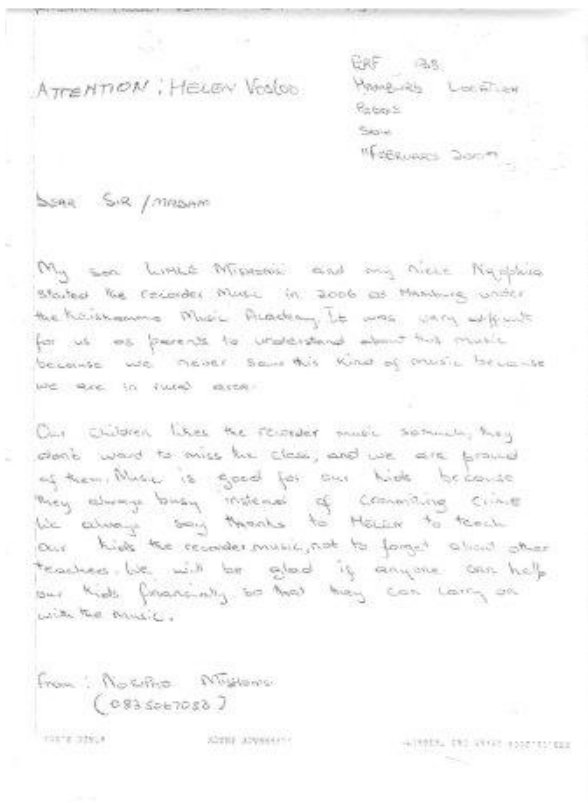 ATTENTION : HELEN Vosloo
ERF
HAMBURG LOCATION
FEBRUARY
DEAR SIR / MADAM
My son and my niece
started the recorder Music in 2006 at Hamburg under
the Keiskamma Music Academy. It was very difficult
for us as parents to understand about this music
because we never saw this kind of music because
we are in rural area.
Our children likes the recorder music somuch, they
dont want to miss the class, and we are proud
of them. Music is good for our kids because
they always busy instead of commiting crime
We always say thanks to HELEN to teach
our kids the recorder music, not to forget about other
teachers. We will be glad if anyone can help
our kids financially so that they can carry on
with the music.
From :